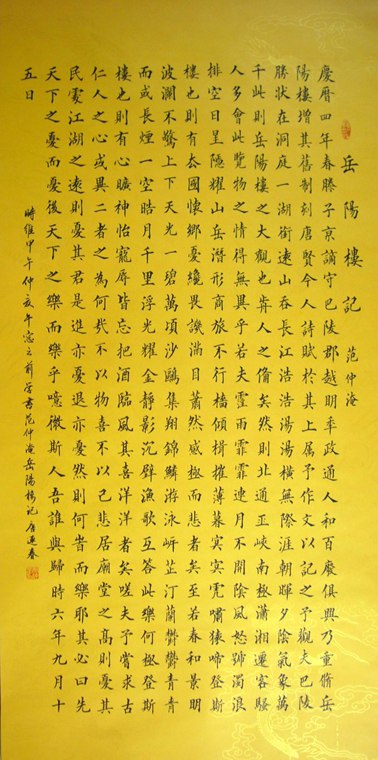 岳陽樓記 范仲淹
慶曆四年春滕子京謫守巴陵郡越明年政通人和百廢俱興乃重脩岳
陽樓增其舊制刻唐賢今人詩賦於其上属予作文以記之予觀夫巴陵
勝狀在洞庭一湖銜遠山吞長江浩浩湯湯橫無際涯朝暉夕陰氣象萬
千此則岳陽樓之大觀也前人之備矣然則北通巫峽南極瀟湘遷客騷
人多會此覽物之情得無異乎若夫霪雨霏霏連月不開陰風怒號濁浪
排空日星隱耀山岳潛形商旅不行檣傾楫摧薄暮冥冥虎嘯猿啼登斯
樓也則有去國懷鄉憂讒畏譏滿目蕭然感極而悲者矣至若春和景明
波瀾不驚上下天光一碧萬頃沙鷗集翔錦鱗游泳岸芷汀蘭鬱鬱青青
而或長煙一空皓月千里浮光耀金靜影沉璧漁歌互答此樂何極登斯
樓也則有心曠神怡寵辱皆忘把酒臨風其喜洋洋者矣嗟夫予嘗求古
仁人之心或異二者之為何哉不以物喜不以己悲居廟堂之高則憂其
民處江湖之遠則憂其君是進亦憂退亦憂然則何時而樂耶其必曰先
天下之憂而憂後天下之樂而樂乎噫微斯人吾誰與歸時六年九月十
五日
時維甲午仲 午窓之前学書范仲淹岳陽樓記 迎春